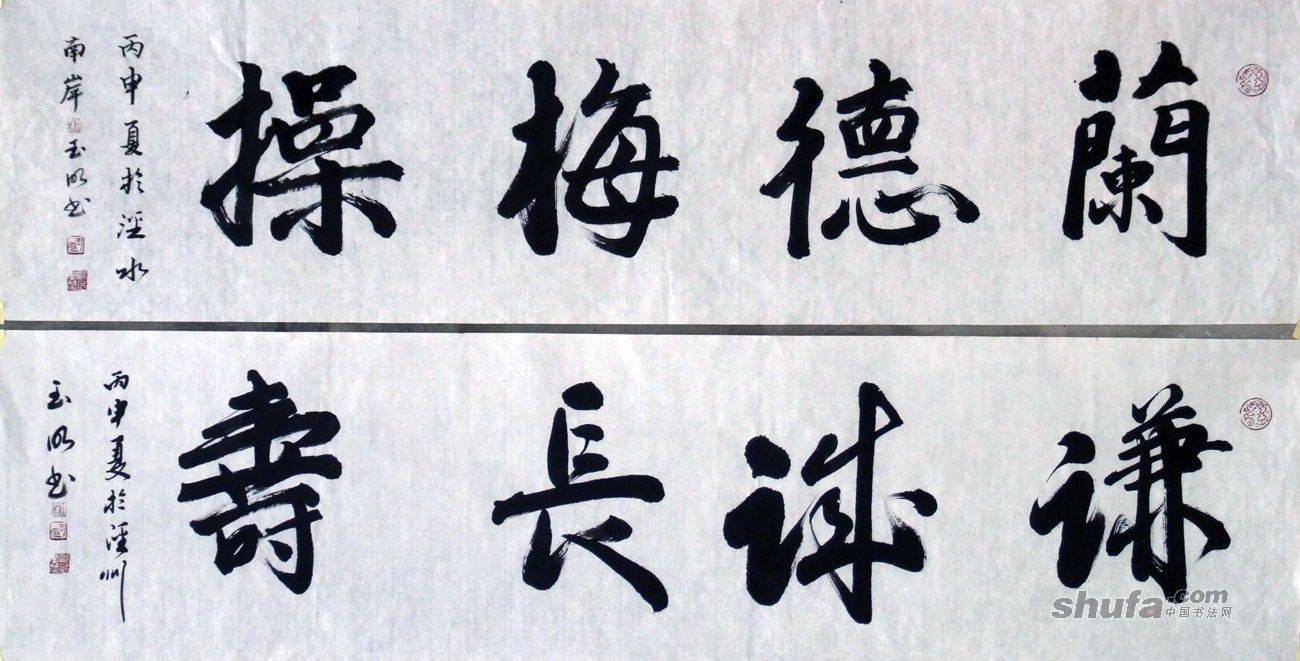 蘭德梅操
丙申夏於涇水
南岸玉明書
謙誠長壽
丙申夏於涇州
玉明書
shufa.com
中国书法网